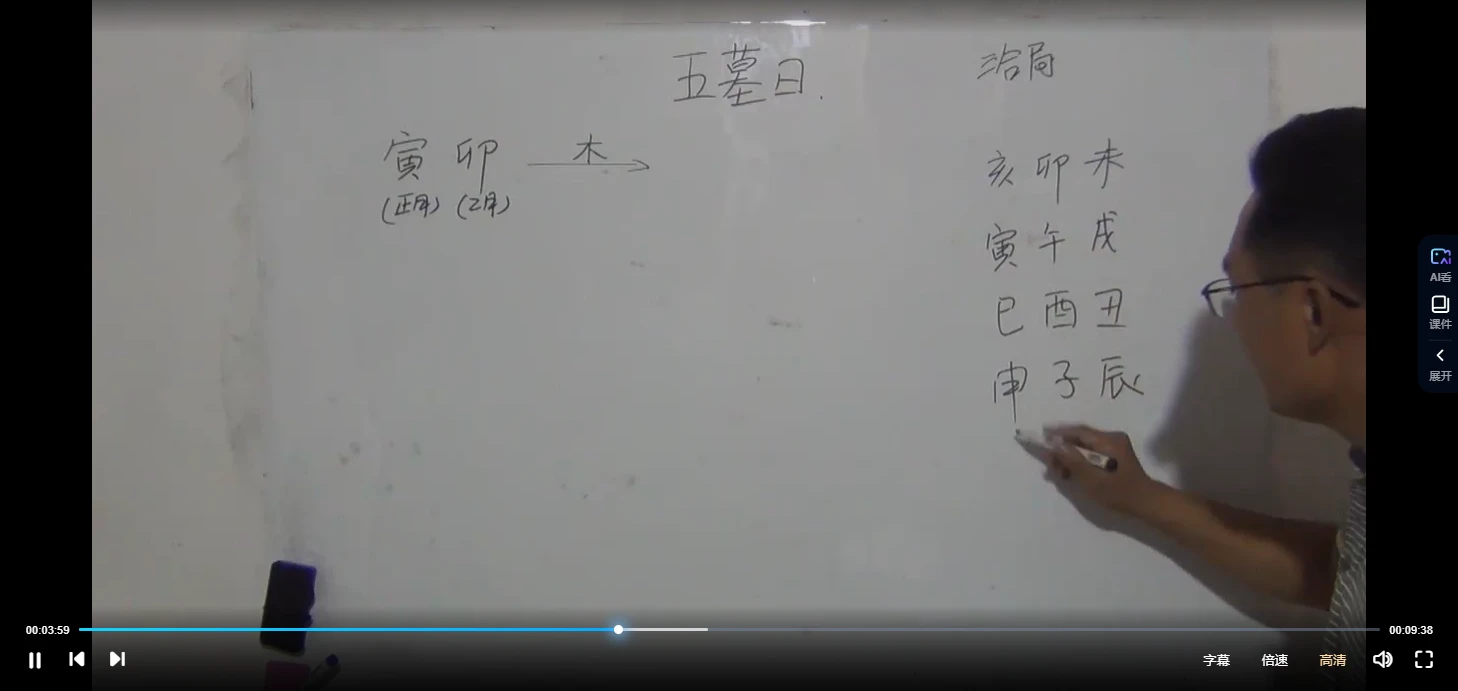 五墓日.
三合局
寅 卯 木
(正月) (2月)
亥 卯 未
寅 午 戌
巳 酉 丑
申 子 辰
AI看
课件
展开
00:03:59
00:09:38
字幕 倍速 高清